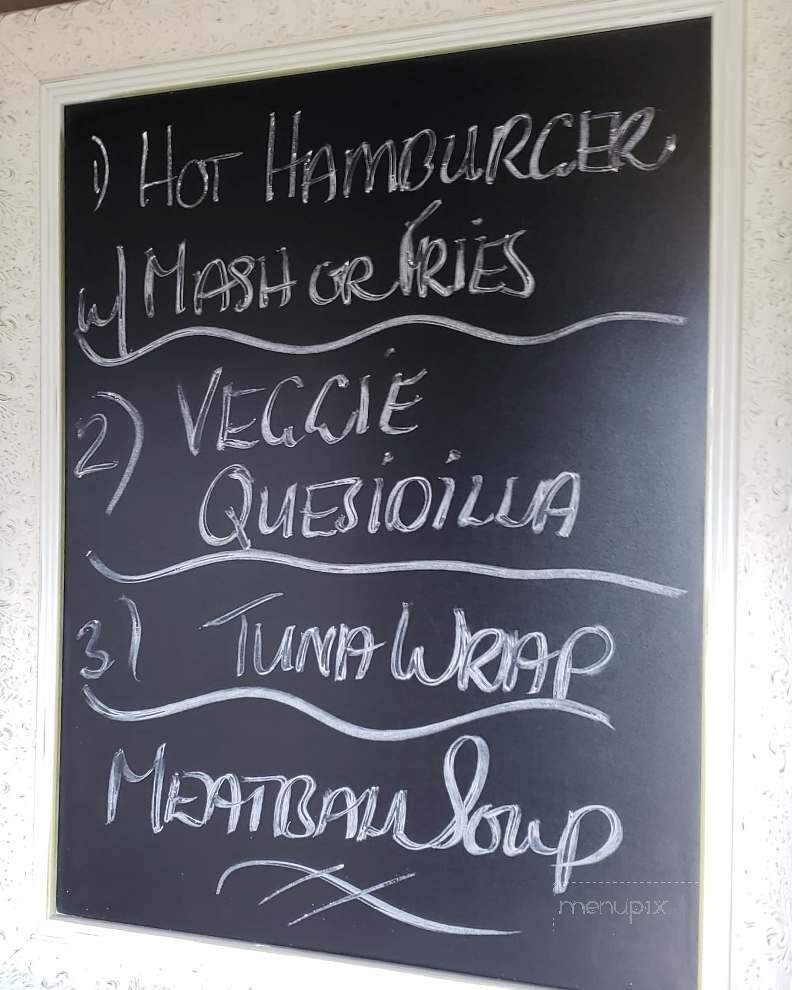 1) HOT HAMBURGER
W/ MASH OR FRIES
2) VEGGIE
QUESIDILLA
3) TUNA WRAP
MEATBALL SOUP
menupix